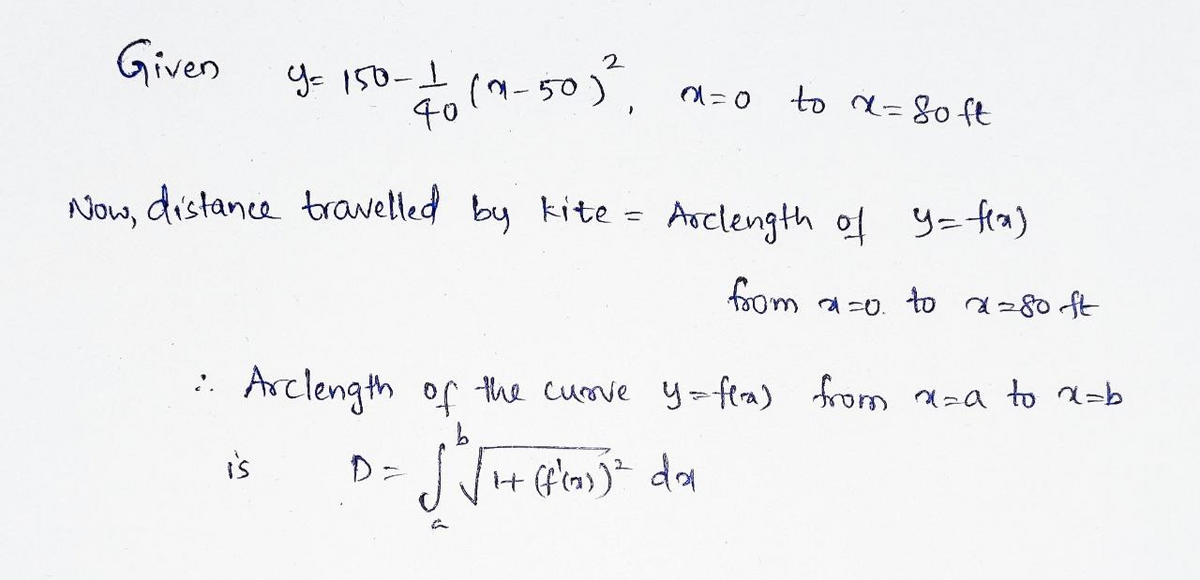 Given y = 150 - 1/40 (x - 50)², x = 0 to x = 80 ft
Now, distance travelled by kite = Arclength of y = f(x)
from x = 0. to x = 80 ft
∴ Arclength of the curve y = f(x) from x = a to x = b
is D = ∫ₐᵇ √(1 + (f'(x))²) dx